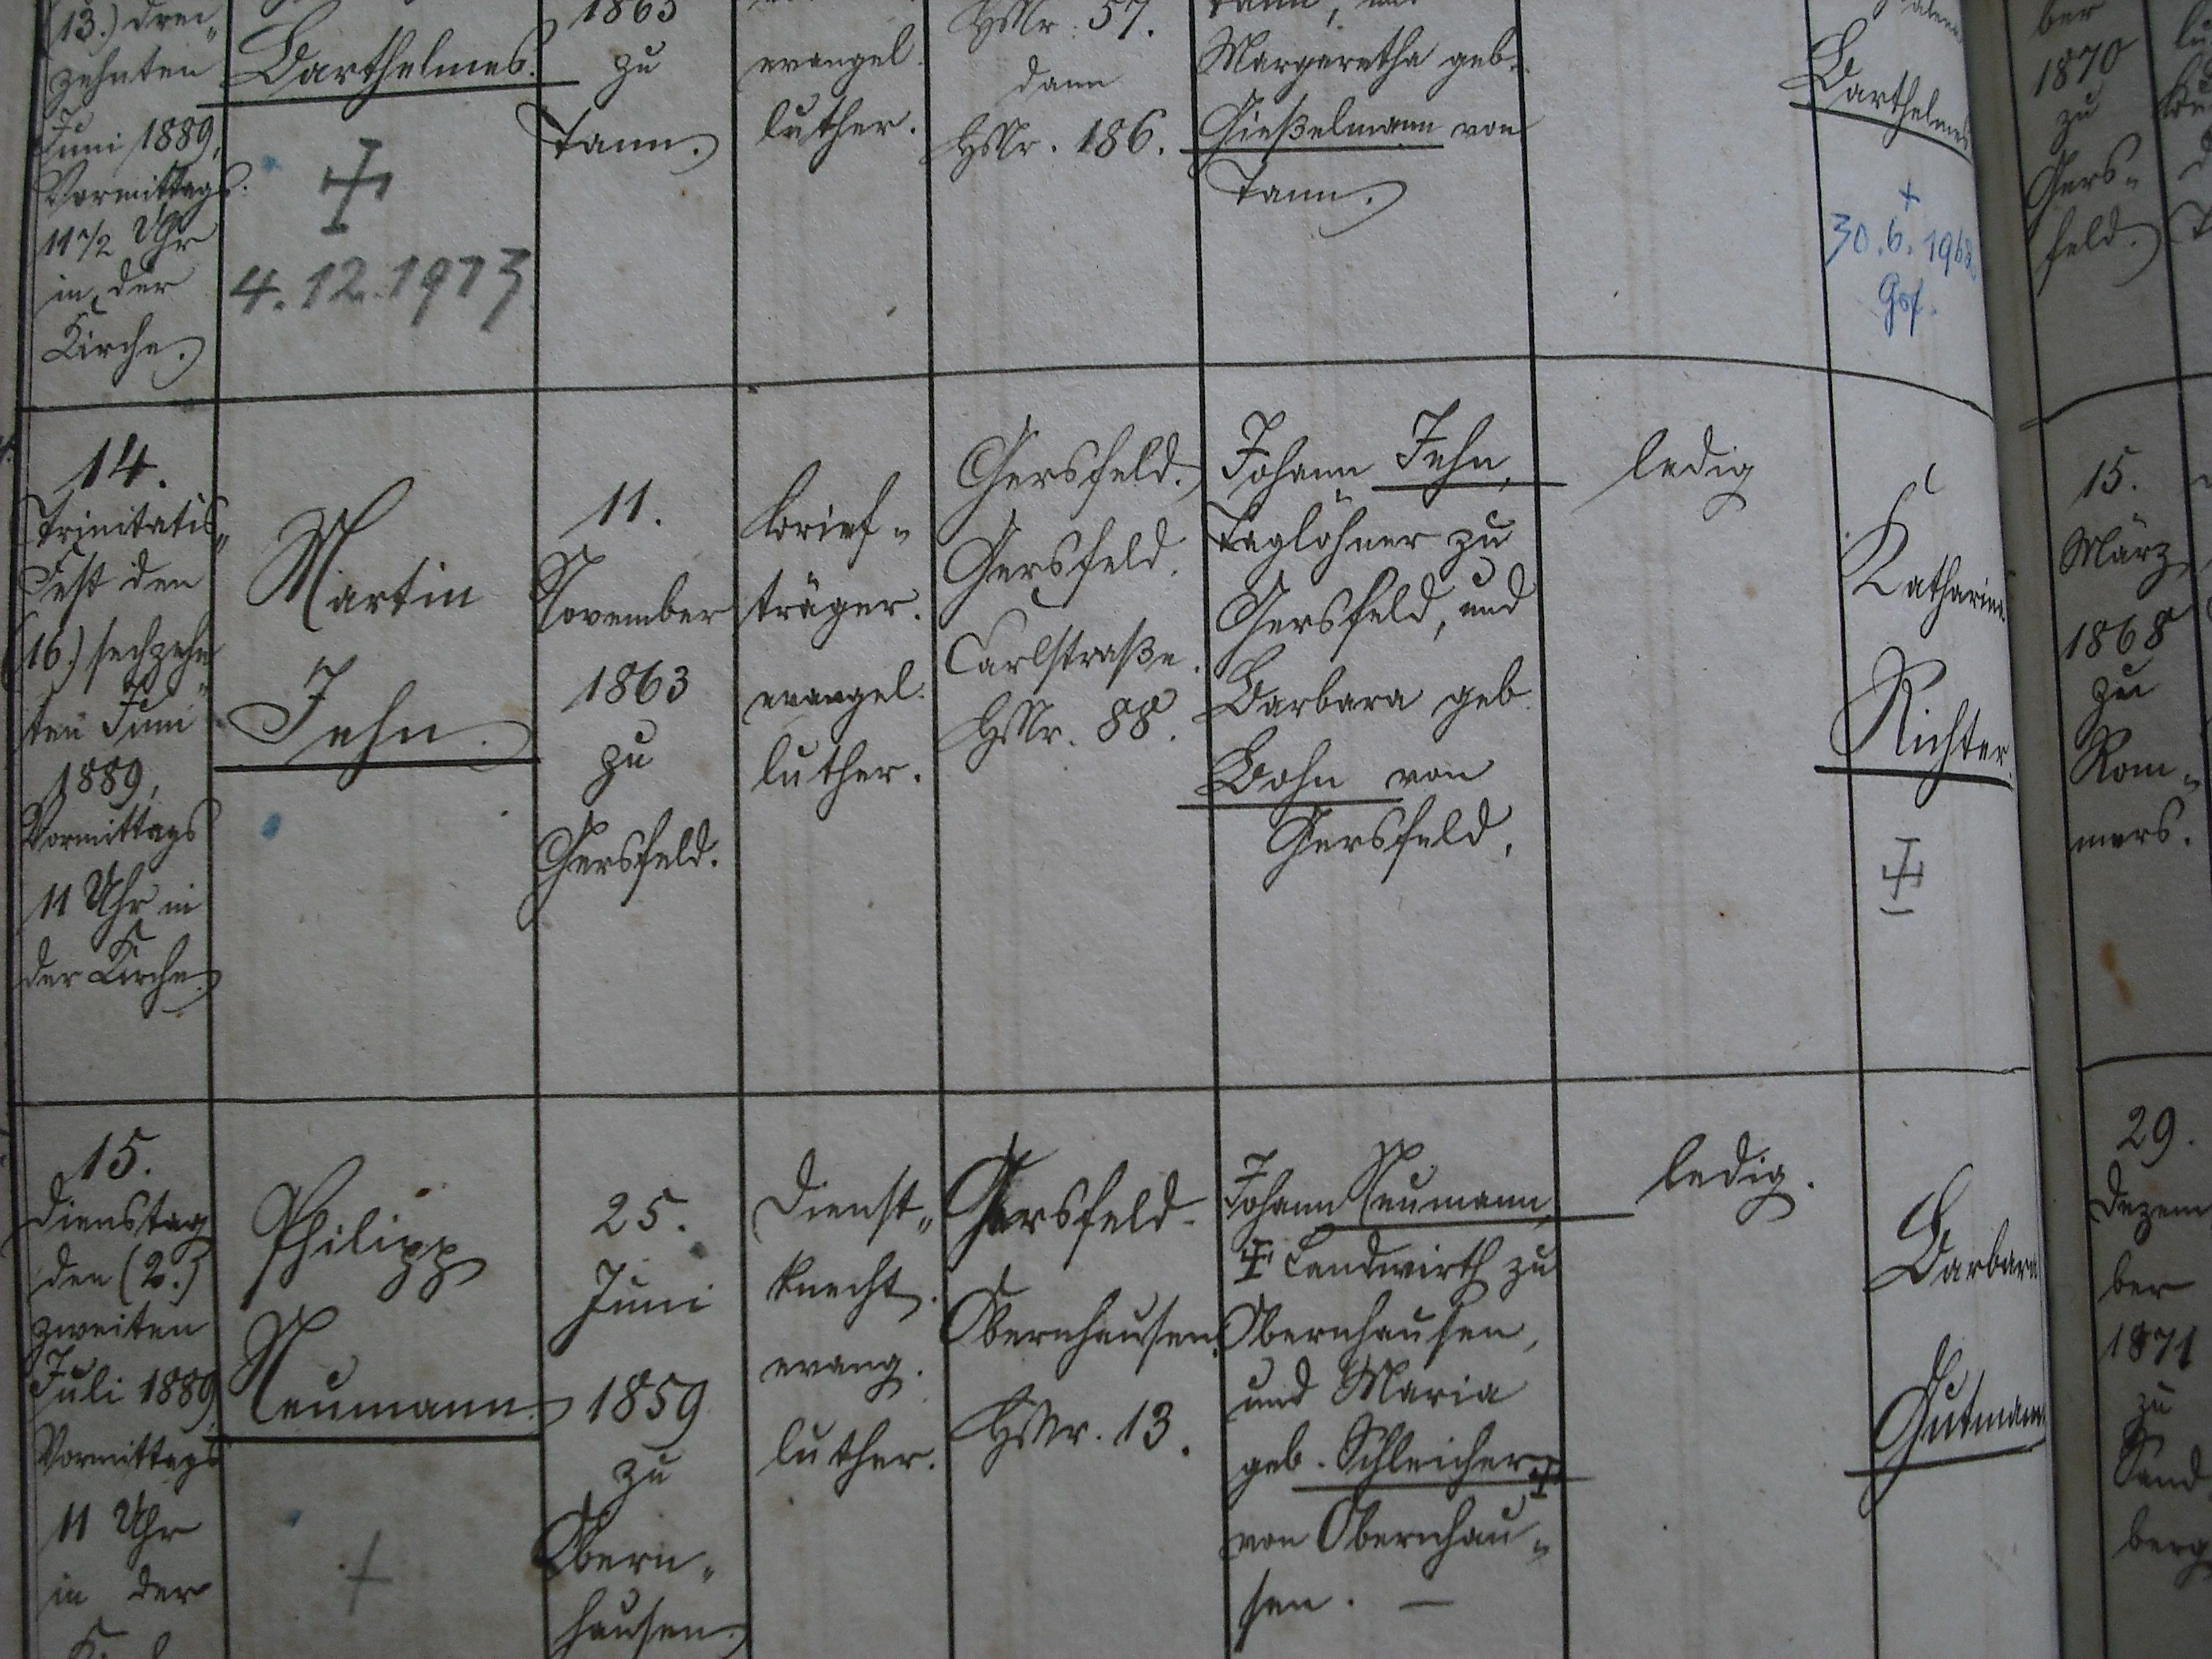 (13.) drei„
zehnten
Juni 1889,
Vormittags
11 1/2 Uhr
in der
Kirche.
Barthelmes.
4.12.1973
1863
zu
Tann.
evangel.
luther.
HsNr. 57.
dann
HsNr. 186.
Margaretha geb.
Gießelmann von
Tann.
Barthelmes
+
30.6.196
Gsf.
ber
1870
zu
Gers„
feld.
14.
Trinitatis„
Fest den
(16.) sechzehn„
ten Juni
1889,
Vormittags
11 Uhr in
der Kirche.
Martin
Jehn.
11.
November
1863
zu
Gersfeld.
Brief„
träger.
evangel.
luther.
Gersfeld.
Gersfeld.
Carlstraße.
HsNr. 88.
Johann Jehn,
Taglöhner zu
Gersfeld, und
Barbara geb.
Bohn von
Gersfeld.
ledig
Katharina
Richter.
15.
März
1868
zu
Rom„
mers.
15.
Dienstag
den (2.)
zweiten
Juli 1889
Vormittags
11 Uhr
in der
Philipp
Neumann.
+
25.
Juni
1859
zu
Obern„
hausen.
Dienst„
knecht.
evang.
luther.
Gersfeld.
Obernhausen.
HsNr. 13.
Johann Neumann,
Landwirth zu
Obernhausen,
und Maria
geb. Schleicher
von Obernhau„
sen. —
ledig.
Barbara
Gutmann
29.
Dezem
ber
1871
zu
Sand
berg